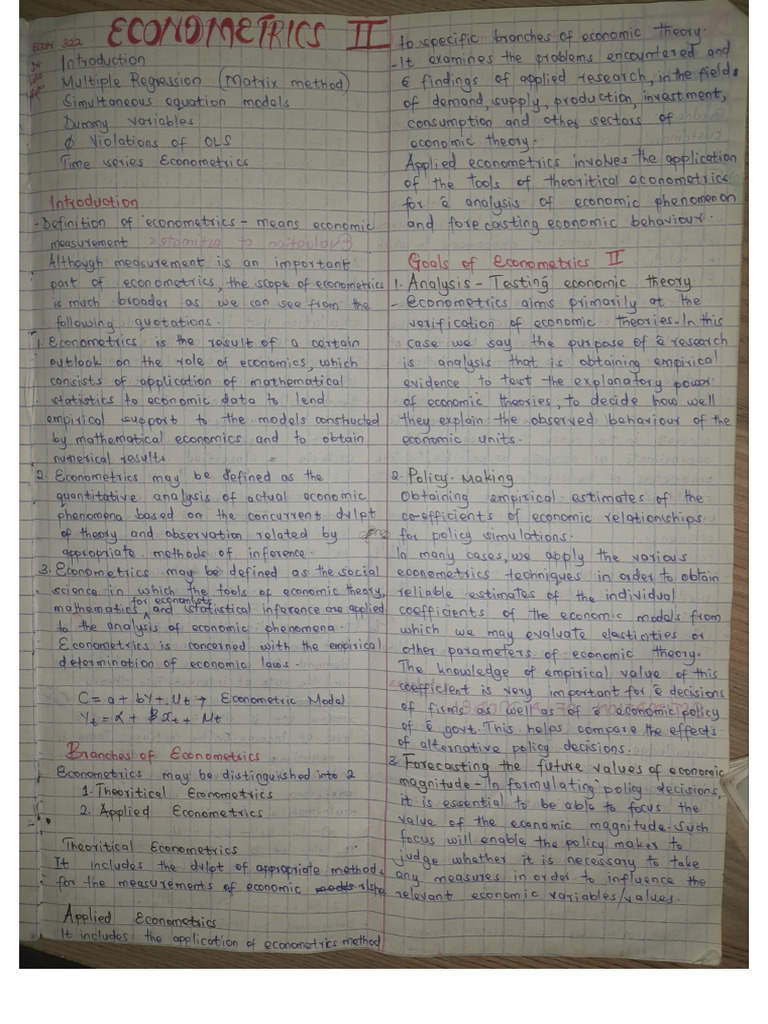 ECONOMETRICS II
ECON 322
Introduction
Multiple Regression (Matrix method)
Simultaneous equation models
Dummy variables
φ Violations of OLS
Time series Econometrics
Introduction
- Definition of econometrics - means economic
measurement
Although measurement is an important
part of econometrics, the scope of econometrics
is much broader as we can see from the
following quotations.
1. Econometrics is the result of a certain
outlook on the role of economics, which
consists of application of mathematical
statistics to economic data to lend
empirical support to the models constructed
by mathematical economics and to obtain
numerical results
2. Econometrics may be defined as the
quantitative analysis of actual economic
phenomena based on the concurrent dvlpt
of theory and observation related by
appropriate methods of inference.
3. Econometrics may be defined as the social
science in which the tools of economic theory,
for economists
mathematics ^ and statistical inference are applied
to the analysis of economic phenomena.
Econometrics is concerned with the empirical
determination of economic laws.
C = a + bY + Ut → Econometric Model
Yt = α + βxt + Ut
Branches of Econometrics
Econometrics may be distinguished into 2
1. Theoritical Econometrics
2. Applied Econometrics
Theoritical Econometrics
It includes the dvlpt of appropriate methods
for the measurements of economic r/ship
Applied Econometrics
It includes the application of econometrics method
to specific branches of economic theory.
- It examines the problems encountered and
& findings of applied research, in the fields
of demand, supply, production, investment,
consumption and other sectors of
economic theory.
Applied econometrics involves the application
of the tools of theoritical econometrics
for & analysis of economic phenomenon
and forecasting economic behaviour.
Goals of Econometrics II
1. Analysis - Testing economic theory
- Econometrics aims primarily at the
verification of economic theories. In this
case we say the purpose of & research
is analysis that is obtaining empirical
evidence to test the explanatory power
of economic theories, to decide how well
they explain the observed behaviour of the
economic units.
2. Policy-Making
Obtaining empirical estimates of the
coefficients of economic relationships
for policy simulations.
In many cases, we apply the various
econometrics techniques in order to obtain
reliable estimates of the individual
coefficients of the economic models from
which we may evaluate elasticities or
other parameters of economic theory.
The knowledge of empirical value of this
coefficient is very important for & decisions
of firms as well as of & economic policy
of & govt. This helps compare the effects
of alternative policy decisions.
3. Forecasting the future values of economic
magnitude - In formulating policy decisions,
it is essential to be able to focus the
value of the economic magnitude. Such
focus will enable the policy maker to
judge whether it is necessary to take
any measures in order to influence the
relevant economic variables/values.